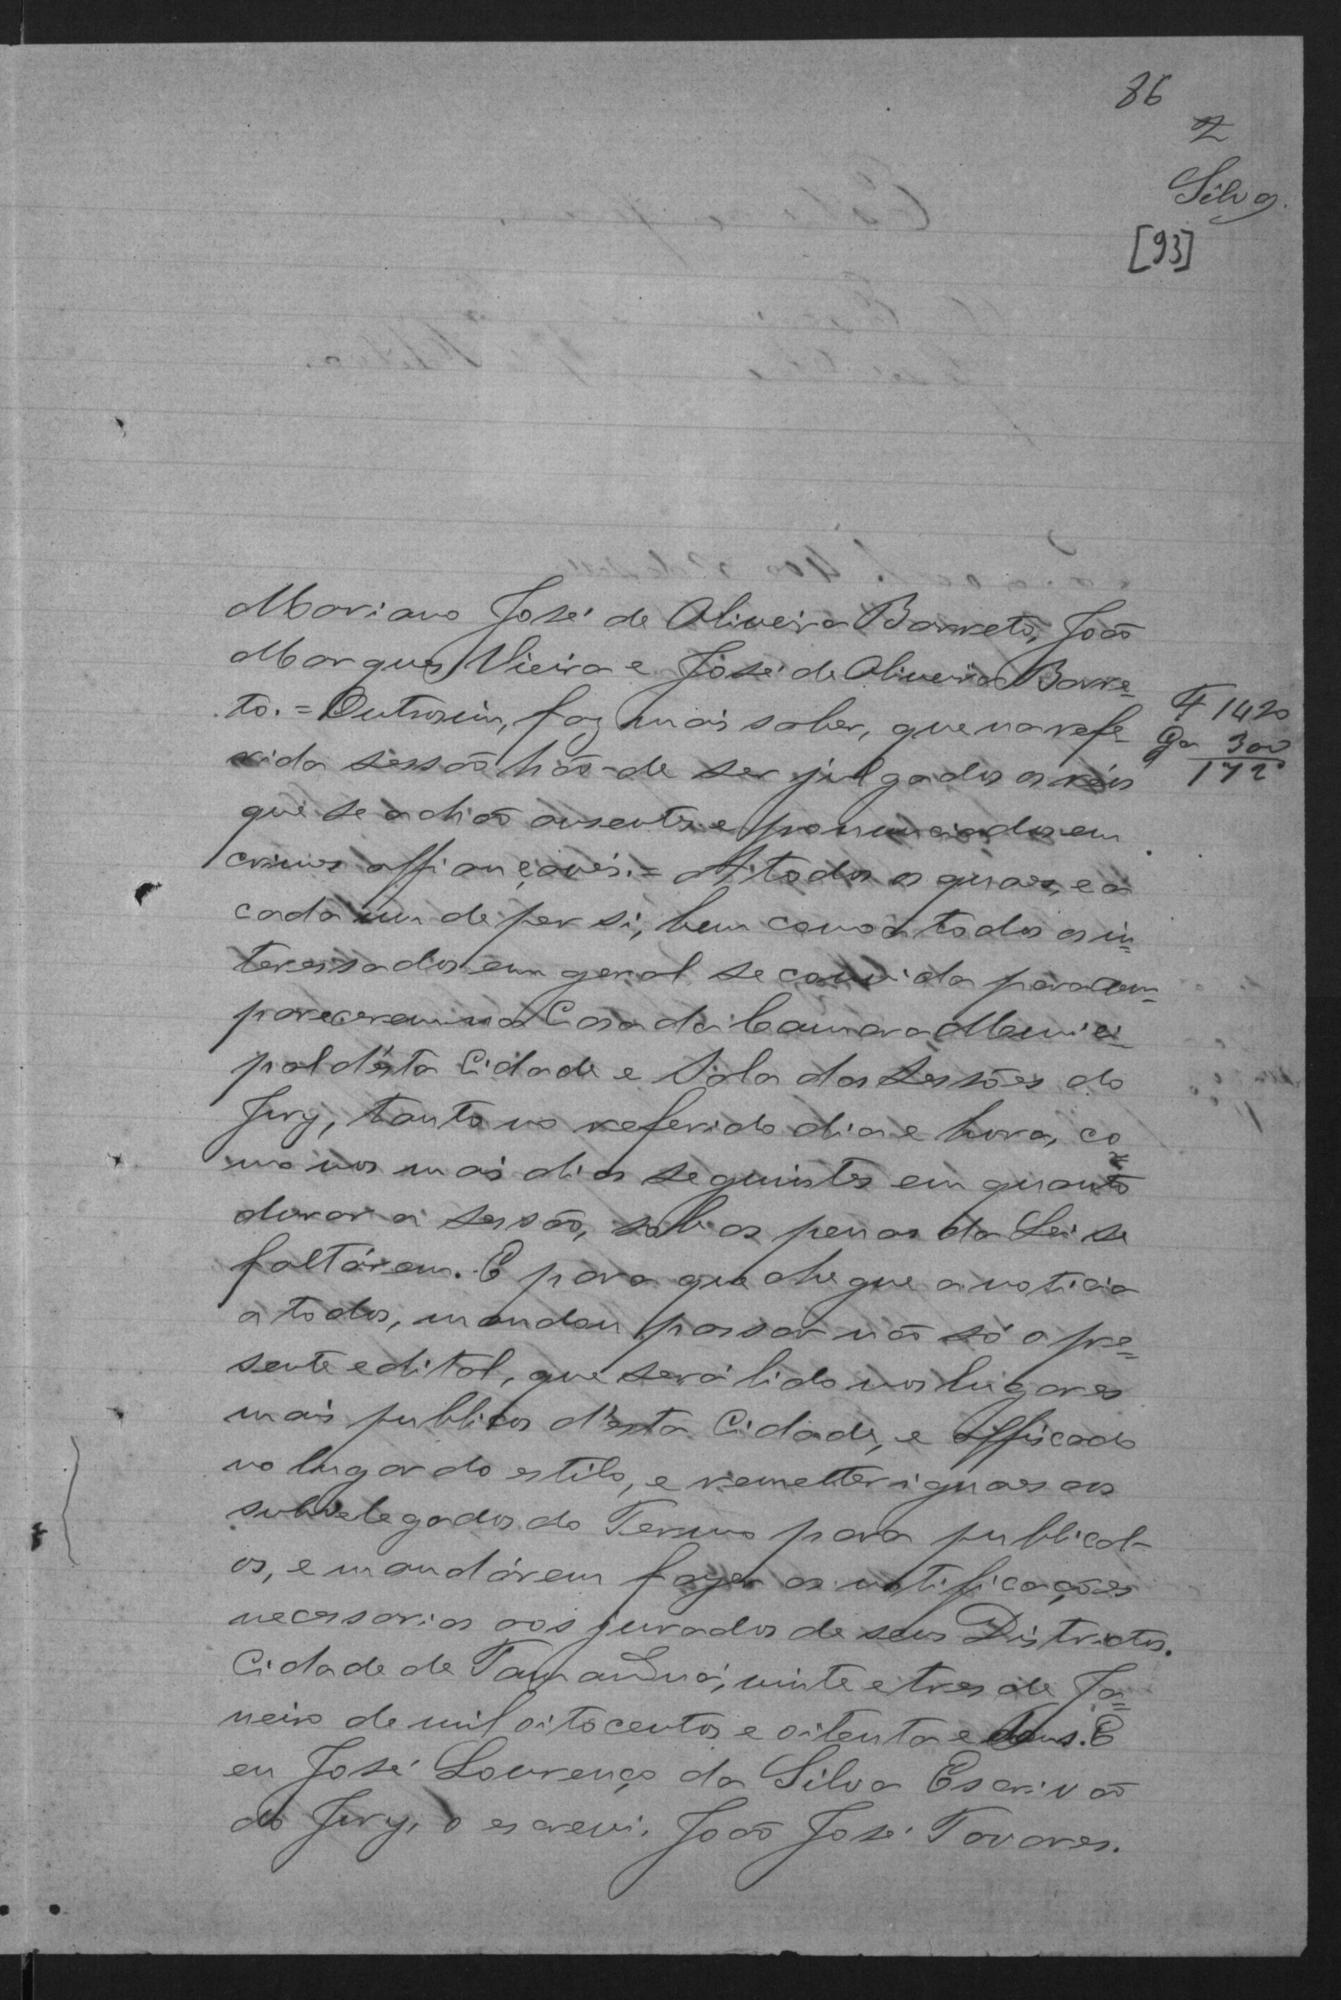 86
2
Silva.
[93]
Mariano José de Oliveira Barreto, João
Marques Vieira e José de Oliveira Barre=
to. = Outrosim, faz mais saber, que na refe=
rida sessão hão-de ser julgados os réos
que se achão ausentes e pronunciados em
crimes affiançaveis. = A todos os quaes, e a
cada um de per si, bem como a todos os in=
teressados em geral se convida para com=
parecerem na Casa da Camara Munici=
pal désta Cidade e Sala das Sessões do
Jury, tanto no referido dia e hora, co
mo nos mais dias seguintes em quanto
durar a sessão, sob as penas da Lei se
faltárem. E para que chegue a noticia
a todos, mandou passar não só o pre=
sente edital, que será lido nos lugares
mais publicos d'esta Cidade, e affixcado
no lugar do estilo, e remetter iguaes aos
subdelegados do Termo para publical-
os, e mandárem fazer as notificações
necessarias aos jurados de seus Districtos.
Cidade de Tamanduá, vinte e tres de Ja=
neiro de mil oitocentos e oitenta e dous. E
eu José Lourenço da Silva Escrivão
do Jury, o escrevi. João José Tavares.
1420
300
172